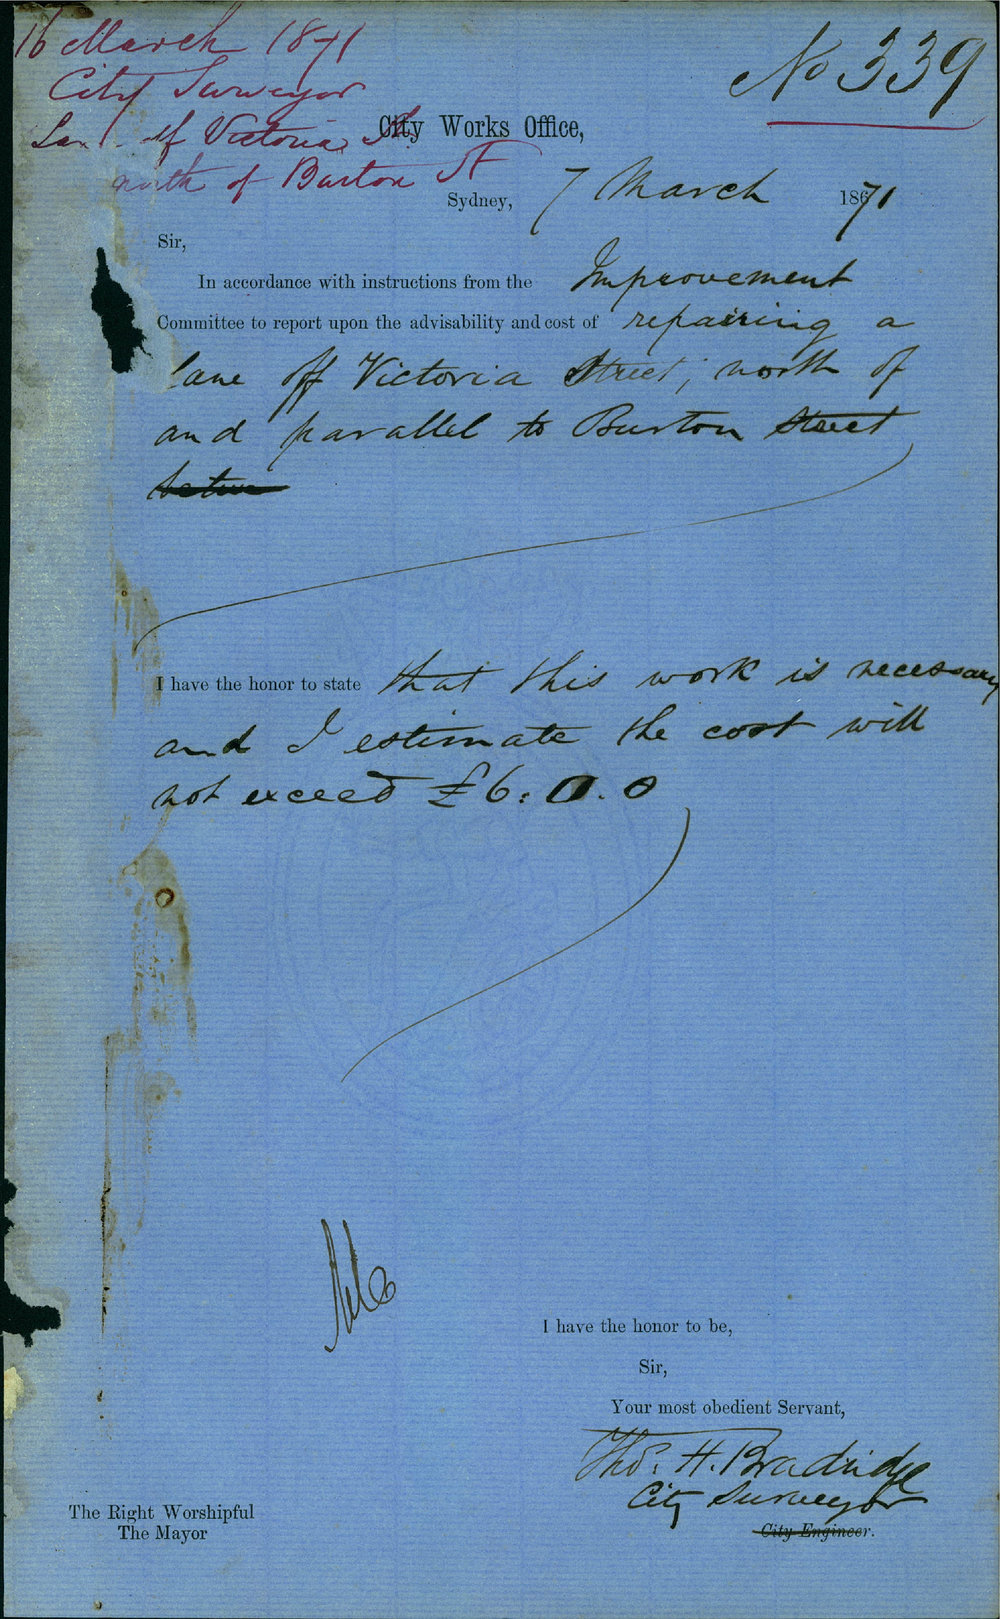 16 March 1871
City Surveyor
Lane off Victoria St
north of Burton St
No 339
City Works Office,
Sydney, 7 March 1871
Sir,
In accordance with instructions from the Improvement
Committee to report upon the advisability and cost of repairing a
lane off Victoria Street, north of
and parallel to Burton Street
betwe
I have the honor to state that this work is necessary
and I estimate the cost will
not exceed £6:0.0
I have the honor to be,
Sir,
Your most obedient Servant,
Thos. H. Bradridge
City Surveyor
City Engineer.
The Right Worshipful
The Mayor